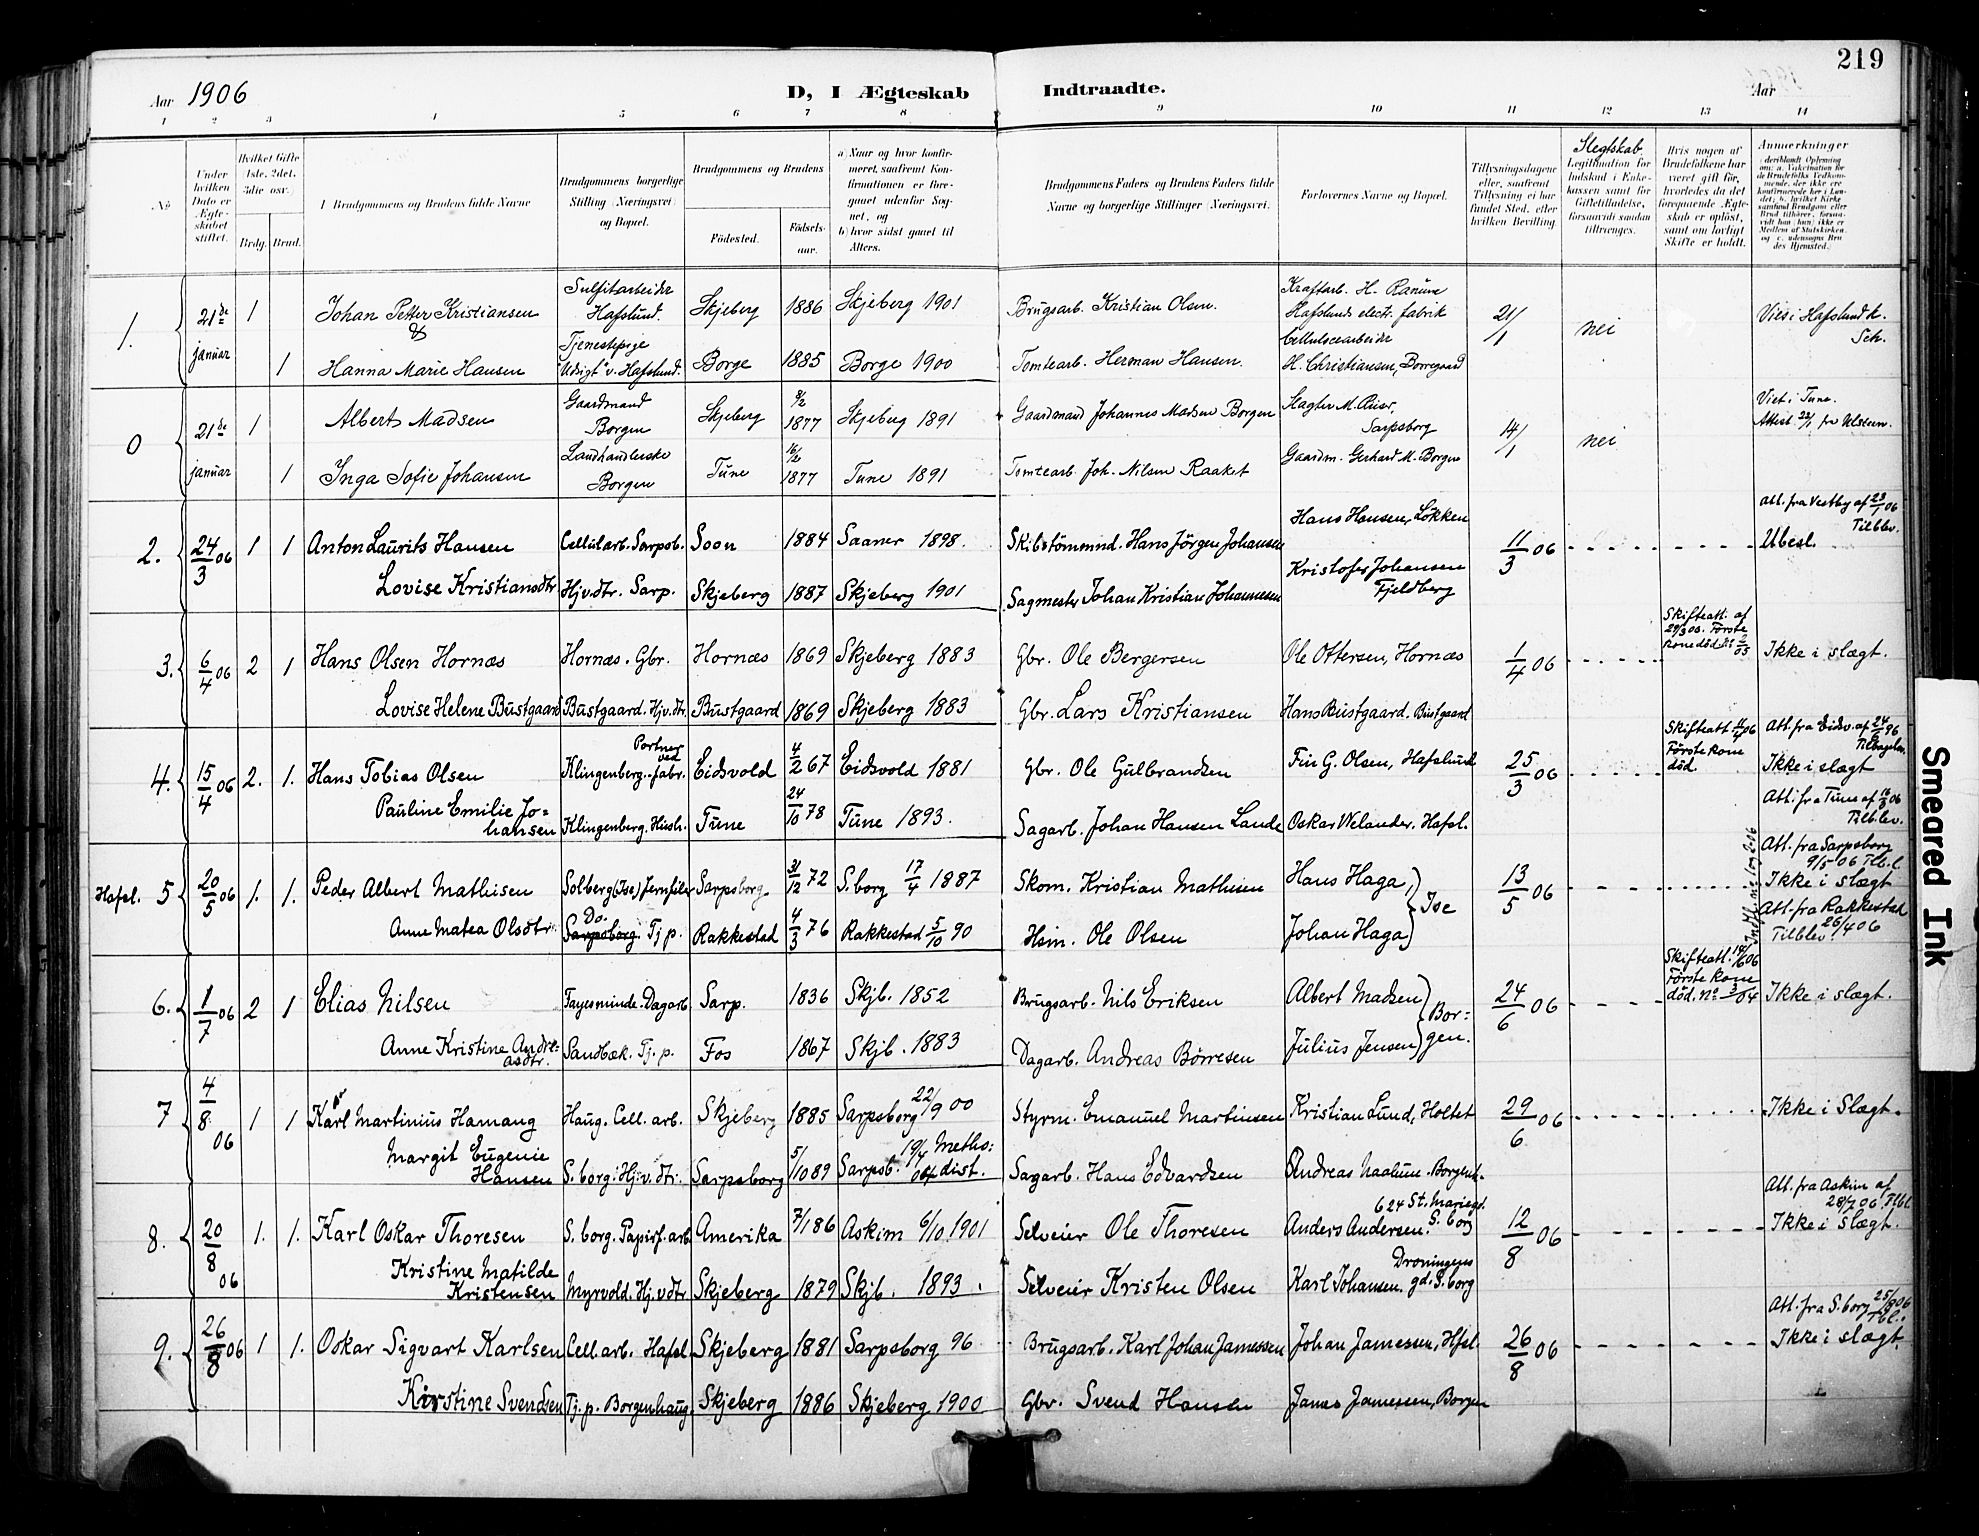 219
Aar 1906
D, I Ægteskab Indtraadte.
Aar
1 2 3 4 5 6 7 8 9 10 11 12 13 14
No
Under hvilken Dato er Ægteskabet stiftet.
Hvilket Gifte 1ste, 2det, 3die osv.
Brdg. Brud.
Brudgommens og Brudens fulde Navne
Brudgommens borgerlige Stilling (Næringsvei) og Bopæl.
Brudgommens og Brudens
Fødested. Fødselsaar.
a) Naar og hvor konfirmeret, saafremt Konfirmationen er foregaaet udenfor Sognet, og
b) hvor sidst gaaet til Alters.
Brudgommens Faders og Brudens Faders fulde Navne og borgerlige Stillinger (Næringsvei).
Forlovernes Navne og Bopæl.
Tillysningsdagene eller, saafremt Tillysning ei har fundet Sted, efter hvilken Bevilling.
Slegtskab
Legitimation for Indskud i Enkekassen samt for Giftetilladelse, forsaavidt saadan tiltrænges.
Hvis nogen af Brudefolkene har været gift før, hvorledes da det foregaaende Ægteskab er opløst, samt om lovligt Skifte er holdt.
Anmerkninger
1. 21de januar 1 Johan Petter Kristiansen & Sulfitarbeider Hafslund. Skjeberg 1886 Skjeberg 1901 Brugsarb. Kristian Olsen. Kraftarb. H. Ranum Hafslunds electr. fabrik 21/1 nei Viet i Hafslund k. Sch.
1 Hanna Marie Hansen Tjenestepige "Udsigt" v. Hafslund. Borge 1885 Borge 1900 Tomtearb. Herman Hansen. Cellulosearbeider H. Christiansen, Borregaard
0 21de januar 1 Albert Madsen Gaardmand Borgen Skjeberg 1877 Skjeberg 1891 Gaardmand Johannes Madsen Borgen Slagter M. Riser, Sarpsborg 14/1 nei Viet i Tune. Attest 22/1 fra Ulleern.
1 Inga Sofie Johansen Landhandlerske Borgen Tune 16/2 1877 Tune 1891 Tomtearb. Joh. Nilsen Raaket Gaardm. Gerhard M. Borgen
2. 24/3 06 1 1 Anton Laurits Hansen Cellularb. Sarpsb. Soon 1884 Saaner 1898. Skibstömmnd. Hans Jörgen Johansen Hans Hansen, Løkken 11/3 06 Att. fra Vestby af 23/1 06 Tilblev. Ubesl.
Lovise Kristiansdtr Hjv.dtr. Sarp. Skjeberg 1887 Skjeberg 1901 Sagmester Johan Kristian Johannesen Kristofer Johansen Fjeldberg
3. 6/4 06 2 1 Hans Olsen Hornæs Hornæs. Gbr. Hornæs 1869 Skjeberg 1883 Gbr. Ole Bergersen Ole Ottersen, Hornæs 1/4 06 Skifteatt. af 29/3 06. Første kone död Ikke i slægt.
Lovise Helene Bustgaard Bustgaard. Hjv.dtr. Bustgaard 1869 Skjeberg 1883 Gbr. Lars Kristiansen Hans Bustgaard. Bustgaard
4. 15/4 06 2. 1. Hans Tobias Olsen Portner ved Klingenberg-fabr. Eidsvold 4/2 67 Eidsvold 1881 Gbr. Ole Gulbrandsen Fin G. Olsen, Hafslund 25/3 06 Skifteatt Første kone död. Att. fra Eidsv. af Tilbagelev. Ikke i slægt
Pauline Emilie Johansen Klingenberg. Hush. Tune 24/10 78 Tune 1893. Sagarb. Johan Hansen Lande Oskar Welander. Hafsl. Att. fra Tune af 16/3 06 Tilblev.
Hafsl. 5 20/5 06 1. 1. Peder Albert Mathisen Solberg (Ise) Jernfiler Sarpsborg 31/12 72 S.borg 17/4 1887 Skom. Kristian Mathisen Hans Haga, 13/5 06 Att. fra Sarpsborg 9/5 06 Tlb.l. Ikke i slægt
Anne Matea Olsdtr. Do. Sarpsborg. Tj.p. Rakkestad 4/3 76 Rakkestad 5/10 90 Hsm. Ole Olsen Johan Haga Ise Att. fra Rakkestad Tilblev. 26/4 06
6. 1/7 06 2 1 Elias Nilsen Fayesminde. Dagarb. Sarp. 1836 Skjb. 1852 Brugsarb. Nils Eriksen Albert Madsen Borgen. 24/6 06 Skifteatt. Første kone död. Ikke i slægt.
Anne Kristine Andreasdtr. Sandbæk. Tj.p. Fos 1867 Skjb. 1883 Dagarb. Andreas Börresen Julius Jensen
7 4/8 06 1 1 Karl Martinius Hamang Haug. Cell. arb. Skjeberg 1885 Sarpsborg 22/9 00 Styrm. Emanuel Martinsen Kristian Lund, Holtet 29/6 06 Ikke i Slægt.
Margit Eugenie Hansen S.borg. Hj.v.dtr. Sarpsborg 5/10 89 Sarpsb. 19/4 04 Methodist. Sagarb. Hans Edvardsen Andreas Naalum. Borgenh.
8. 20/8 06 1. 1. Karl Oskar Thoresen S.borg. Papirf.arb Amerika 7/1 86 Askim 6/10 1901 Selveier Ole Thoresen 624 St. Mariegd. Anders Andersen. S.borg 12/8 06 Att. fra Askim af 28/7 06 Tlbl. Ikke i slægt.
Kristine Matilde Kristensen Myrvold. Hj.v.dtr Skjeberg 1879 Skjb. 1893. Selveier Kristen Olsen Karl Johansen. Dronningens gd. S.borg
9. 26/8 06 1 1. Oskar Sigvart Karlsen Cell.arb. Hafsl. Skjeberg 1881 Sarpsborg 96 Brugsarb. Karl Johan Jamessen Johan Jamessen, Hfsl. 26/8 06 Att. fra S.borg 25/8 06 Tbl. Ikke i slægt.
Kirstine Svendsen Tj.p. Borgenhaug. Skjeberg 1886 Skjeberg 1900 Gbr. Svend Hansen James Jamessen, Borgen
Smeared Ink